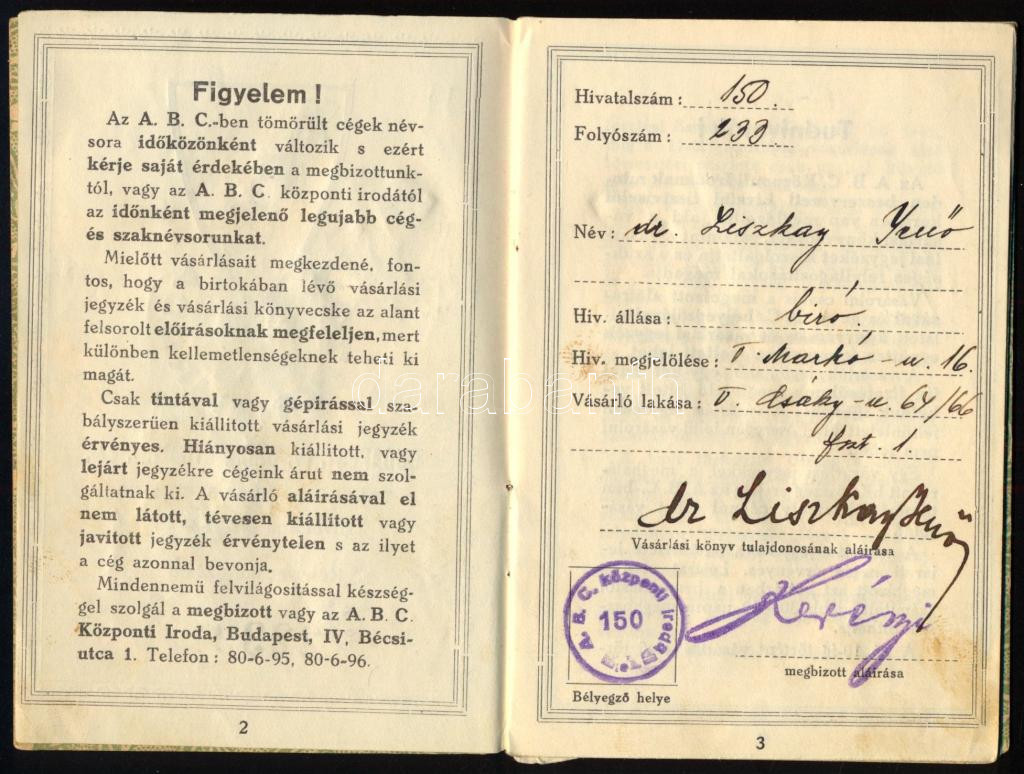 Figyelem !
Az A. B. C.-ben tömörült cégek név-
sora időközönként változik s ezért
kérje saját érdekében a megbizottunk-
tól, vagy az A. B. C. központi irodától
az időnként megjelenő legujabb cég-
és szaknévsorunkat.
Mielőtt vásárlásait megkezdené, fon-
tos, hogy a birtokában lévő vásárlási
jegyzék és vásárlási könyvecske az alant
felsorolt előirásoknak megfeleljen, mert
különben kellemetlenségeknek teheti ki
magát.
Csak tintával vagy gépirással sza-
bályszerüen kiállitott vásárlási jegyzék
érvényes. Hiányosan kiállitott, vagy
lejárt jegyzékre cégeink árut nem szol-
gáltatnak ki. A vásárló aláirásával el
nem látott, tévesen kiállitott vagy
javitott jegyzék érvénytelen s az ilyet
a cég azonnal bevonja.
Mindennemü felvilágositással készség-
gel szolgál a megbizott vagy az A. B. C.
Központi Iroda, Budapest, IV, Bécsi-
utca 1. Telefon : 80-6-95, 80-6-96.
2
Hivatalszám : 150.
Folyószám : 233.
Név : dr. Liszkay Jenő
Hiv. állása : biró.
Hiv. megjelölése : V. Markó-u. 16.
Vásárló lakása : V. Csáky-u. 64/66
fszt. 1.
dr Liszkay Jenő
Vásárlási könyv tulajdonosának aláirása
A. B. C. központi iroda
150
megbizott aláirása
Bélyegző helye
3
darabanth